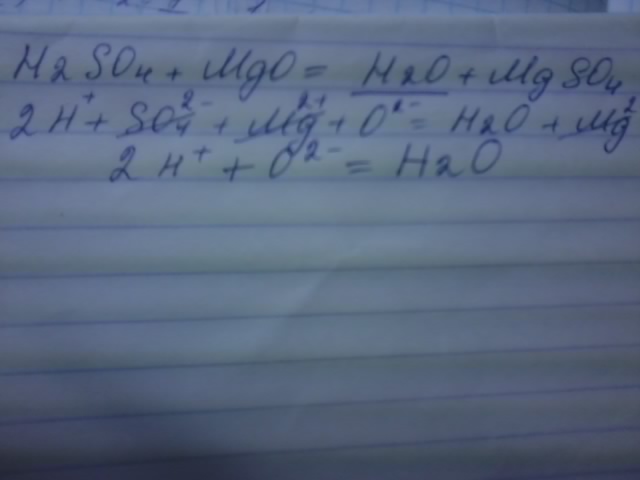 H2SO4 + MgO = H2O + MgSO4
2H⁺ + SO4²⁻ + Mg²⁺ + O²⁻ = H2O + Mg²
2H⁺ + O²⁻ = H2O